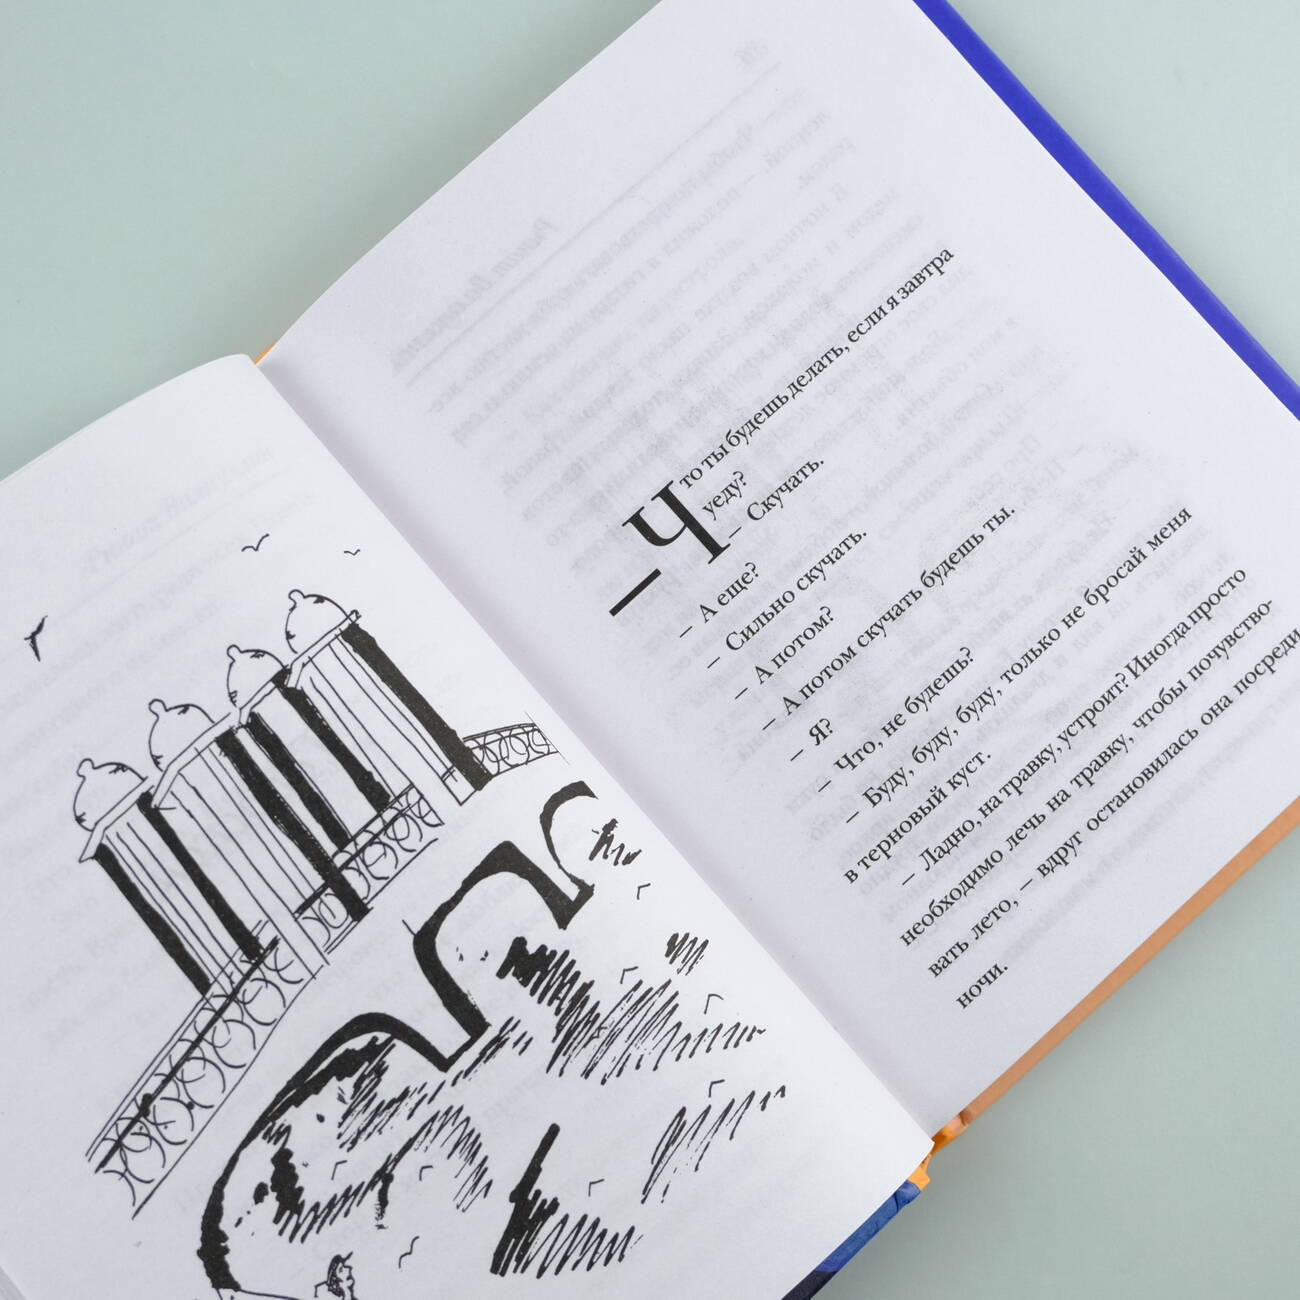 – Что ты будешь делать, если я завтра
уеду?
– Скучать.
– А еще?
– Сильно скучать.
– А потом?
– А потом скучать будешь ты.
– Я?
– Что, не будешь?
– Буду, буду, буду, только не бросай меня
в терновый куст.
– Ладно, на травку, устроит? Иногда просто
необходимо лечь на травку, чтобы почувство-
вать лето, – вдруг остановилась она посреди
ночи.